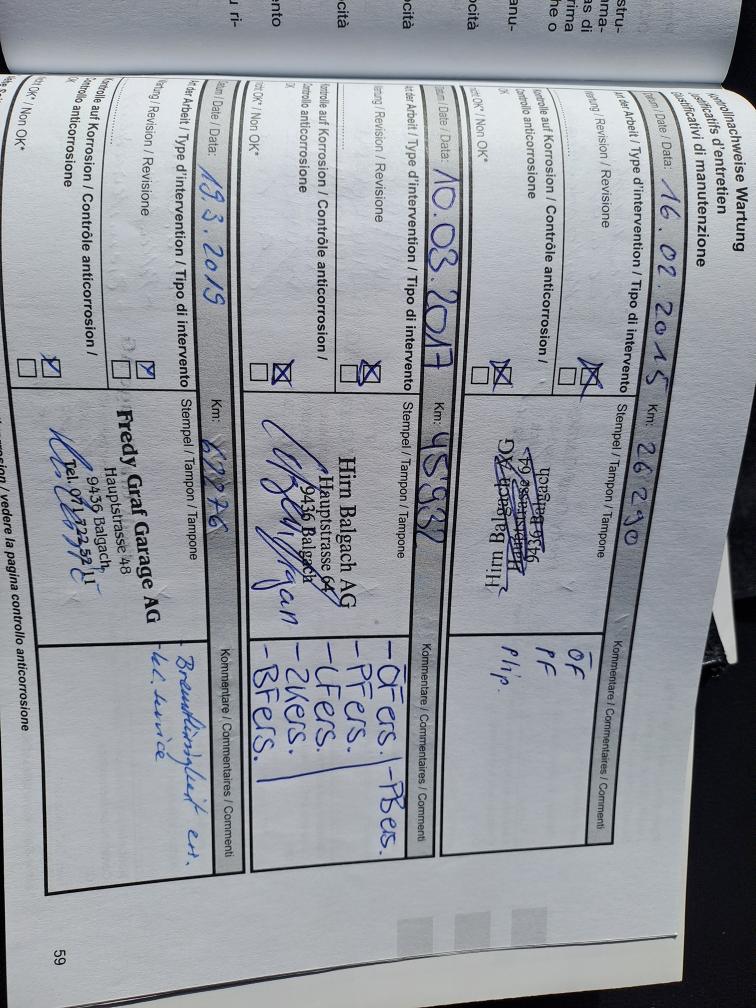 Kontrollnachweise Wartung
Justificatifs d'entretien
Giustificativi di manutenzione
Datum / Date / Data: 16.02.2015 Km: 26290
Art der Arbeit / Type d'intervention / Tipo di intervento
Stempel / Tampon / Tampone
Kommentare / Commentaires / Commenti
Wartung / Revision / Revisione
Kontrolle auf Korrosion / Contrôle anticorrosion /
Controllo anticorrosione
OK
Nicht OK* / Non OK*
Hirn Balgach AG
Hauptstrasse 64
9436 Balgach
ÖF
PF
Plip.
Datum / Date / Data: 10.03.2017 Km: 45937
Art der Arbeit / Type d'intervention / Tipo di intervento
Stempel / Tampon / Tampone
Kommentare / Commentaires / Commenti
Wartung / Revision / Revisione
Kontrolle auf Korrosion / Contrôle anticorrosion /
Controllo anticorrosione
OK
Nicht OK* / Non OK*
Hirn Balgach AG
Hauptstrasse 64
9436 Balgach
-ÖFers. -PBers.
-PFers.
-LFers.
-ZKers.
-BFers.
Datum / Date / Data: 19.3.2019 Km:
Art der Arbeit / Type d'intervention / Tipo di intervento
Stempel / Tampon / Tampone
Kommentare / Commentaires / Commenti
Wartung / Revision / Revisione
Kontrolle auf Korrosion / Contrôle anticorrosion /
Controllo anticorrosione
OK
Nicht OK* / Non OK*
Fredy Graf Garage AG
Hauptstrasse 48
9436 Balgach
Tel. 071 722 52 11
- Bremsflüssigkeit ers.
- kl. service
vedere la pagina controllo anticorrosione
59